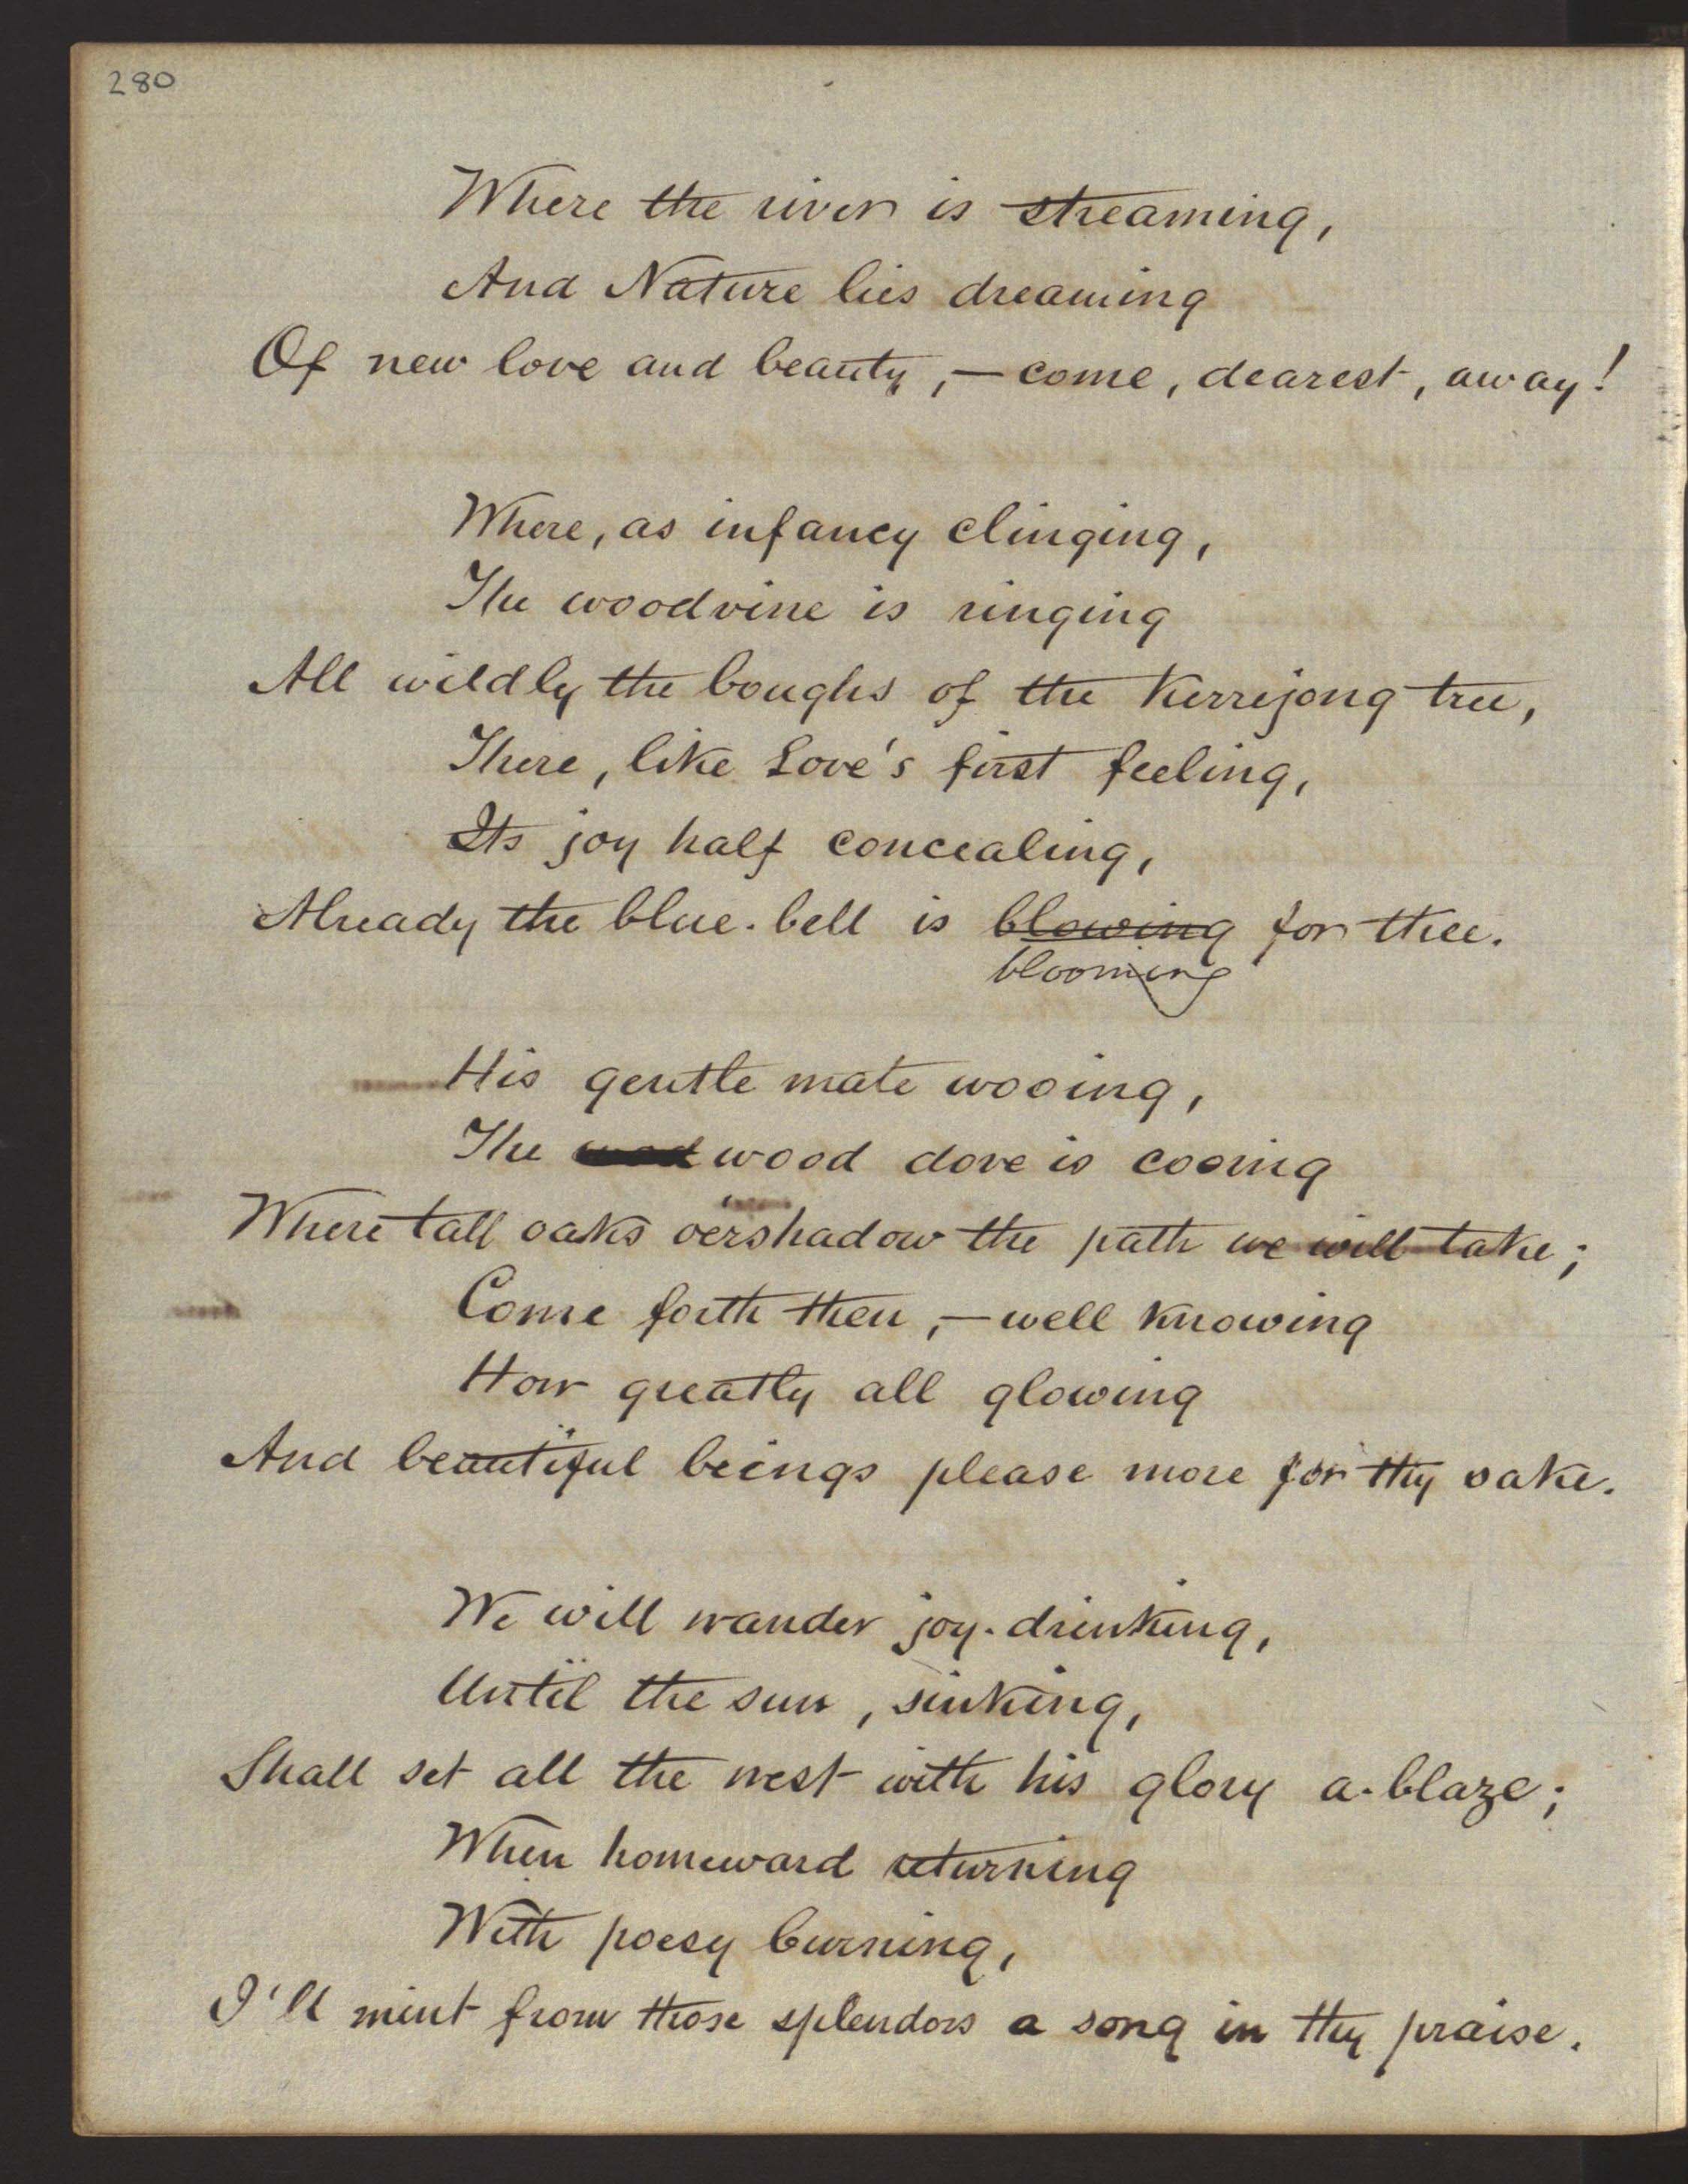 280
Where the river is streaming,
And Nature lies dreaming
Of new love and beauty,—come, dearest, away!
Where, as infancy clinging,
The woodvine is ringing
All wildly the boughs of the Kerrijong tree,
There, like Love's first feeling,
Its joy half concealing,
Already the blue-bell is blowing for thee.
blooming
His gentle mate wooing,
The wood dove is cooing
Where tall oaks oe'rshadow the path we will take;
Come forth then,—well knowing
How greatly all glowing
And beautiful beings please more for thy sake.
We will wander joy-drinking,
Until the sun, sinking,
Shall set all the west with his glory a-blaze;
When homeward returning
With poesy burning,
I'll mint from those splendors a song in thy praise.